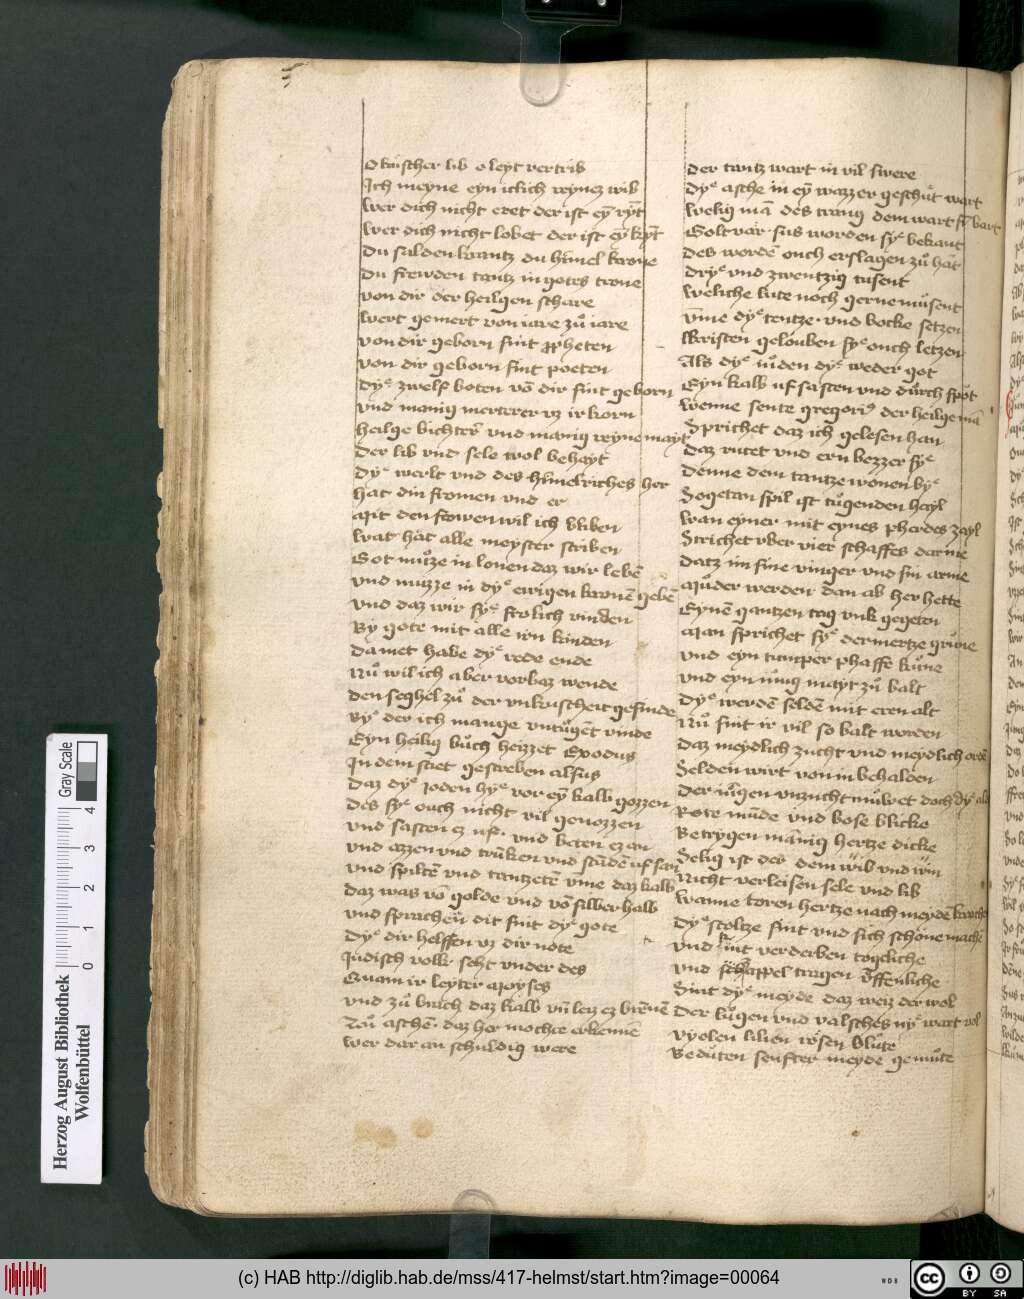 O kuischer lib o leyt vertrib
Ich meyne eyn iclich reynez wib
Wer dich nicht eret der ist eȳ rȳt
Wer dich nicht lobet der ist eȳ kȳt
Du salden krantz du himel krone
Du frewden tantz in gotes trone
Von dir der heilgen schare
Wert gemert von iare zuͦ iare
Von dir geborn sint ꝓpheten
Von dir geborn sint poeten
Dyͤ zwelf boten vō dir sint geborn
Vnd manig merterer vz ir korn
Heilge bichter vnd manig reyne mayt
Der lib vnd sele wol behayt
Dyͤ werlt vnd des himelriches her
Hat din fromen vnd er
Mit den frowen wil ich bliben
Wat hat alle meyster scriben
Got muͦze in lonen daz wir lebē
Vnd muzze in dyͤ ewigen kronē gebē
Vnd daz wir syͤ frolich vinden
By gote mit alle irn kinden
Da met habe dyͤ rede ende
Nuͦ wil ich aber vorbaz wende
Den seghel zuͦ der vnkuischeit gesinde
Byͤ der ich mange vntugēt vinde
Eyn heilig buͦch heizzet Exodus
In dem stet gescreben alsus
Daz dyͤ joden hyͤ vor eȳ kalb gozzen
Des syͤ ouch nicht vil genozzen
Vnd sasten ez uf vnd beten ez an
Vnd azzen vnd trūken vnd stūdē uf san
Vnd spiltē vnd tantzetē vme daz kalb
Daz was vō golde vnd vō silber halb
Vnd sprachen dit sint dyͤ gote
Dyͤ dir helffen vz dir note
Judisch volk seht vnder des
Quam ir leyter Moyses
Vnd zuͦ brach daz kalb vn̄ letz ez brēnē
Zuͦ aschen daz her mochte erkennē
Wer dar an schuldig were
Der tantz wart in vil swere
Dyͤ asche in eȳ wazzer geschut wart
Welig mā des trang dem wart sȳ bart
Goltvar sus worden syͤ bekant
Des wordē ouch erslagen zuͦ hāt
Dryͤ vnd zwentzig tusent
Weliche lute noch gerne muͦsent
Vme dyͤ tentze vnd bocke setzen
Kristen gelouben syͤ ouch letzen
Als dyͤ iuden dyͤ weder got
Eyn kalb uf sasten vnd durch spot
Wenne sente gregori9 der heilge mā
Sprichet daz ich gelesen han
Daz rutet vnd ern bezzer syͤ
Denne dem tantze wonen byͤ
Sogetan spil ist tugenden hayl
Wan eyner mit eynes pherdes zayl
Strichet vber vier schaffes darme
Datz im sine vinger vnd sin arme
Muͦder werden dan ab her hette
Eynē gantzen tag vnk gegeten
Man sprichet syͤ der mertze gruͦne
Vnd eyn tumper phaffe kuͦne
Vnd eyn iung mayt zuͦ balt
Dyͤ werdē seldē mit eren alt
Nuͦ sint ir vil so balt worden
Daz meydlich zucht vnd meydlich ordē
Selden wirt von in behalden
Rote munde vnd bose blicke
Betrygen manig hertze dicke
Selig ist der dem wib vnd win
Nicht verleisen sele vnd lib
Dyͤ stoltze sint vnd sich schone machē
Vnd mit verderben togeliche
Vnd schappel tragen offenliche
Sint dyͤ meyde daz weiz der wol
Der lugen vnd valsches nyͤ wart vol
Vyolen lilien rosen blute
Beduten senfter meyde gemuͦte
Herzog August Bibliothek
Wolfenbüttel
Gray Scale
0 1 2 3 4
(c) HAB http://diglib.hab.de/mss/417-helmst/start.htm?image=00064
WDB
cc BY SA